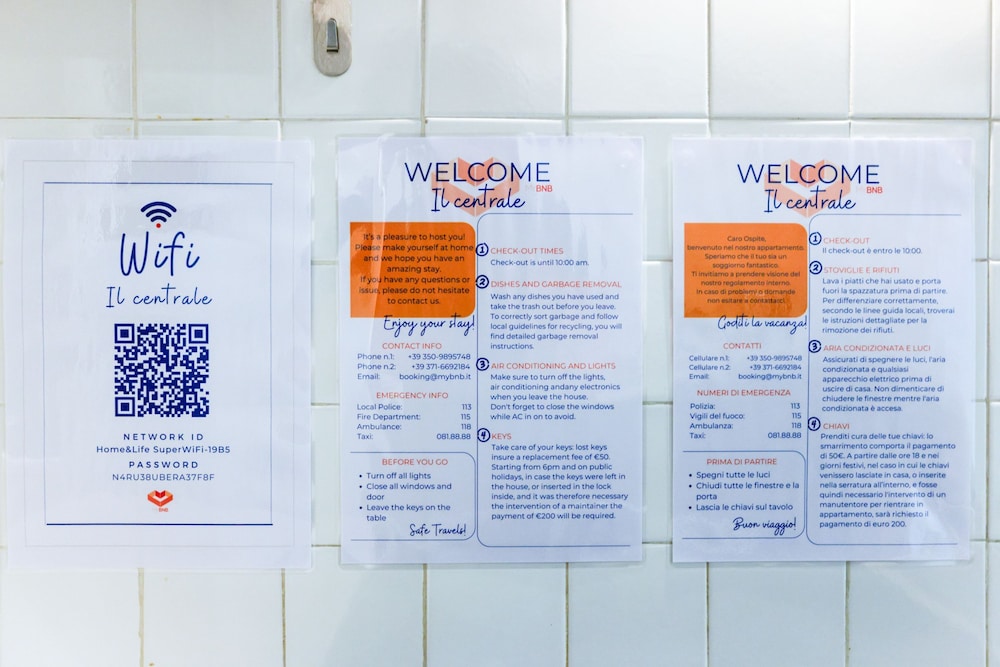 Wifi
Il centrale
NETWORK ID
Home&Life SuperWiFi-19B5
PASSWORD
N4RU38UBERA37F8F
BNB
WELCOME
BNB
Il centrale
It's a pleasure to host you!
Please make yourself at home
and we hope you have an
amazing stay.
If you have any questions or
issue, please do not hesitate
to contact us.
Enjoy your stay!
CONTACT INFO
Phone n.1: +39 350-9895748
Phone n.2: +39 371-6692184
Email: booking@mybnb.it
EMERGENCY INFO
Local Police: 113
Fire Department: 115
Ambulance: 118
Taxi: 081.88.88
BEFORE YOU GO
• Turn off all lights
• Close all windows and
door
• Leave the keys on the
table
Safe Travels!
1 CHECK-OUT TIMES
Check-out is until 10:00 am.
2 DISHES AND GARBAGE REMOVAL
Wash any dishes you have used and
take the trash out before you leave.
To correctly sort garbage and follow
local guidelines for recycling, you will
find detailed garbage removal
instructions.
3 AIR CONDITIONING AND LIGHTS
Make sure to turn off the lights,
air conditioning andany electronics
when you leave the house.
Don't forget to close the windows
while AC in on to avoid.
4 KEYS
Take care of your keys: lost keys
insure a replacement fee of €50.
Starting from 6pm and on public
holidays, in case the keys were left in
the house, or inserted in the lock
inside, and it was therefore necessary
the intervention of a maintainer the
payment of €200 will be required.
WELCOME
BNB
Il centrale
Caro Ospite,
benvenuto nel nostro appartamento.
Speriamo che il tuo sia un
soggiorno fantastico.
Ti invitiamo a prendere visione del
nostro regolamento interno.
In caso di problemi o domande
non esitare a contattarci.
Goditi la vacanza!
CONTATTI
Cellulare n.1: +39 350-9895748
Cellulare n.2: +39 371-6692184
Email: booking@mybnb.it
NUMERI DI EMERGENZA
Polizia: 113
Vigili del fuoco: 115
Ambulanza: 118
Taxi: 081.88.88
PRIMA DI PARTIRE
• Spegni tutte le luci
• Chiudi tutte le finestre e la
porta
• Lascia le chiavi sul tavolo
Buon viaggio!
1 CHECK-OUT
Il check-out è entro le 10:00.
2 STOVIGLIE E RIFIUTI
Lava i piatti che hai usato e porta
fuori la spazzatura prima di partire.
Per differenziare correttamente,
secondo le linee guida locali, troverai
le istruzioni dettagliate per la
rimozione dei rifiuti.
3 ARIA CONDIZIONATA E LUCI
Assicurati di spegnere le luci, l'aria
condizionata e qualsiasi
apparecchio elettrico prima di
uscire di casa. Non dimenticare di
chiudere le finestre mentre l'aria
condizionata è accesa.
4 CHIAVI
Prenditi cura delle tue chiavi: lo
smarrimento comporta il pagamento
di 50€. A partire dalle ore 18 e nei
giorni festivi, nel caso in cui le chiavi
venissero lasciate in casa, o inserite
nella serratura all'interno, e fosse
quindi necessario l'intervento di un
manutentore per rientrare in
appartamento, sarà richiesto il
pagamento di euro 200.